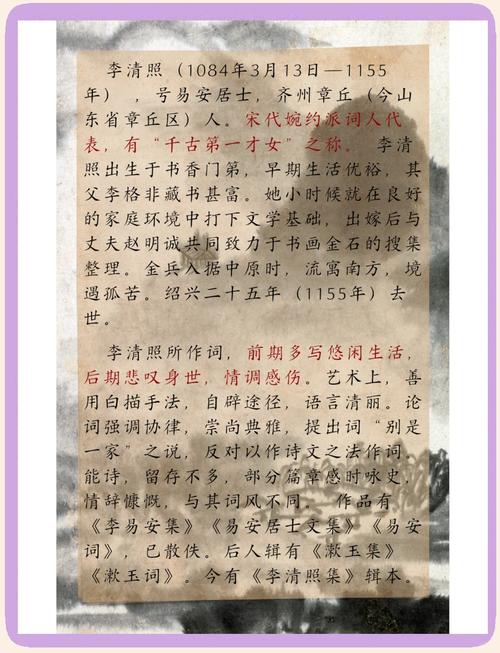 李清照（1084年3月13日—1155
年），号易安居士，齐州章丘（今山
东省章丘区）人。宋代婉约派词人代
表，有“千古第一才女”之称。 李清
照出生于书香门第，早期生活优裕，其
父李格非藏书甚富。她小时候就在良好
的家庭环境中打下文学基础，出嫁后与
丈夫赵明诚共同致力于书画金石的搜集
整理。金兵入据中原时，流寓南方，境
遇孤苦。绍兴二十五年（1155年）去
世。
李清照所作词，前期多写悠闲生活，
后期悲叹身世，情调感伤。艺术上，善
用白描手法，自辟途径，语言清丽。论
词强调协律，崇尚典雅，提出词“别是
一家”之说，反对以作诗文之法作词。
能诗，留存不多，部分篇章感时咏史，
情辞慷慨，与其词风不同。 作品有
《李易安集》《易安居士文集》《易安
词》，已散佚。后人辑有《漱玉集》
《漱玉词》。今有《李清照集》辑本。